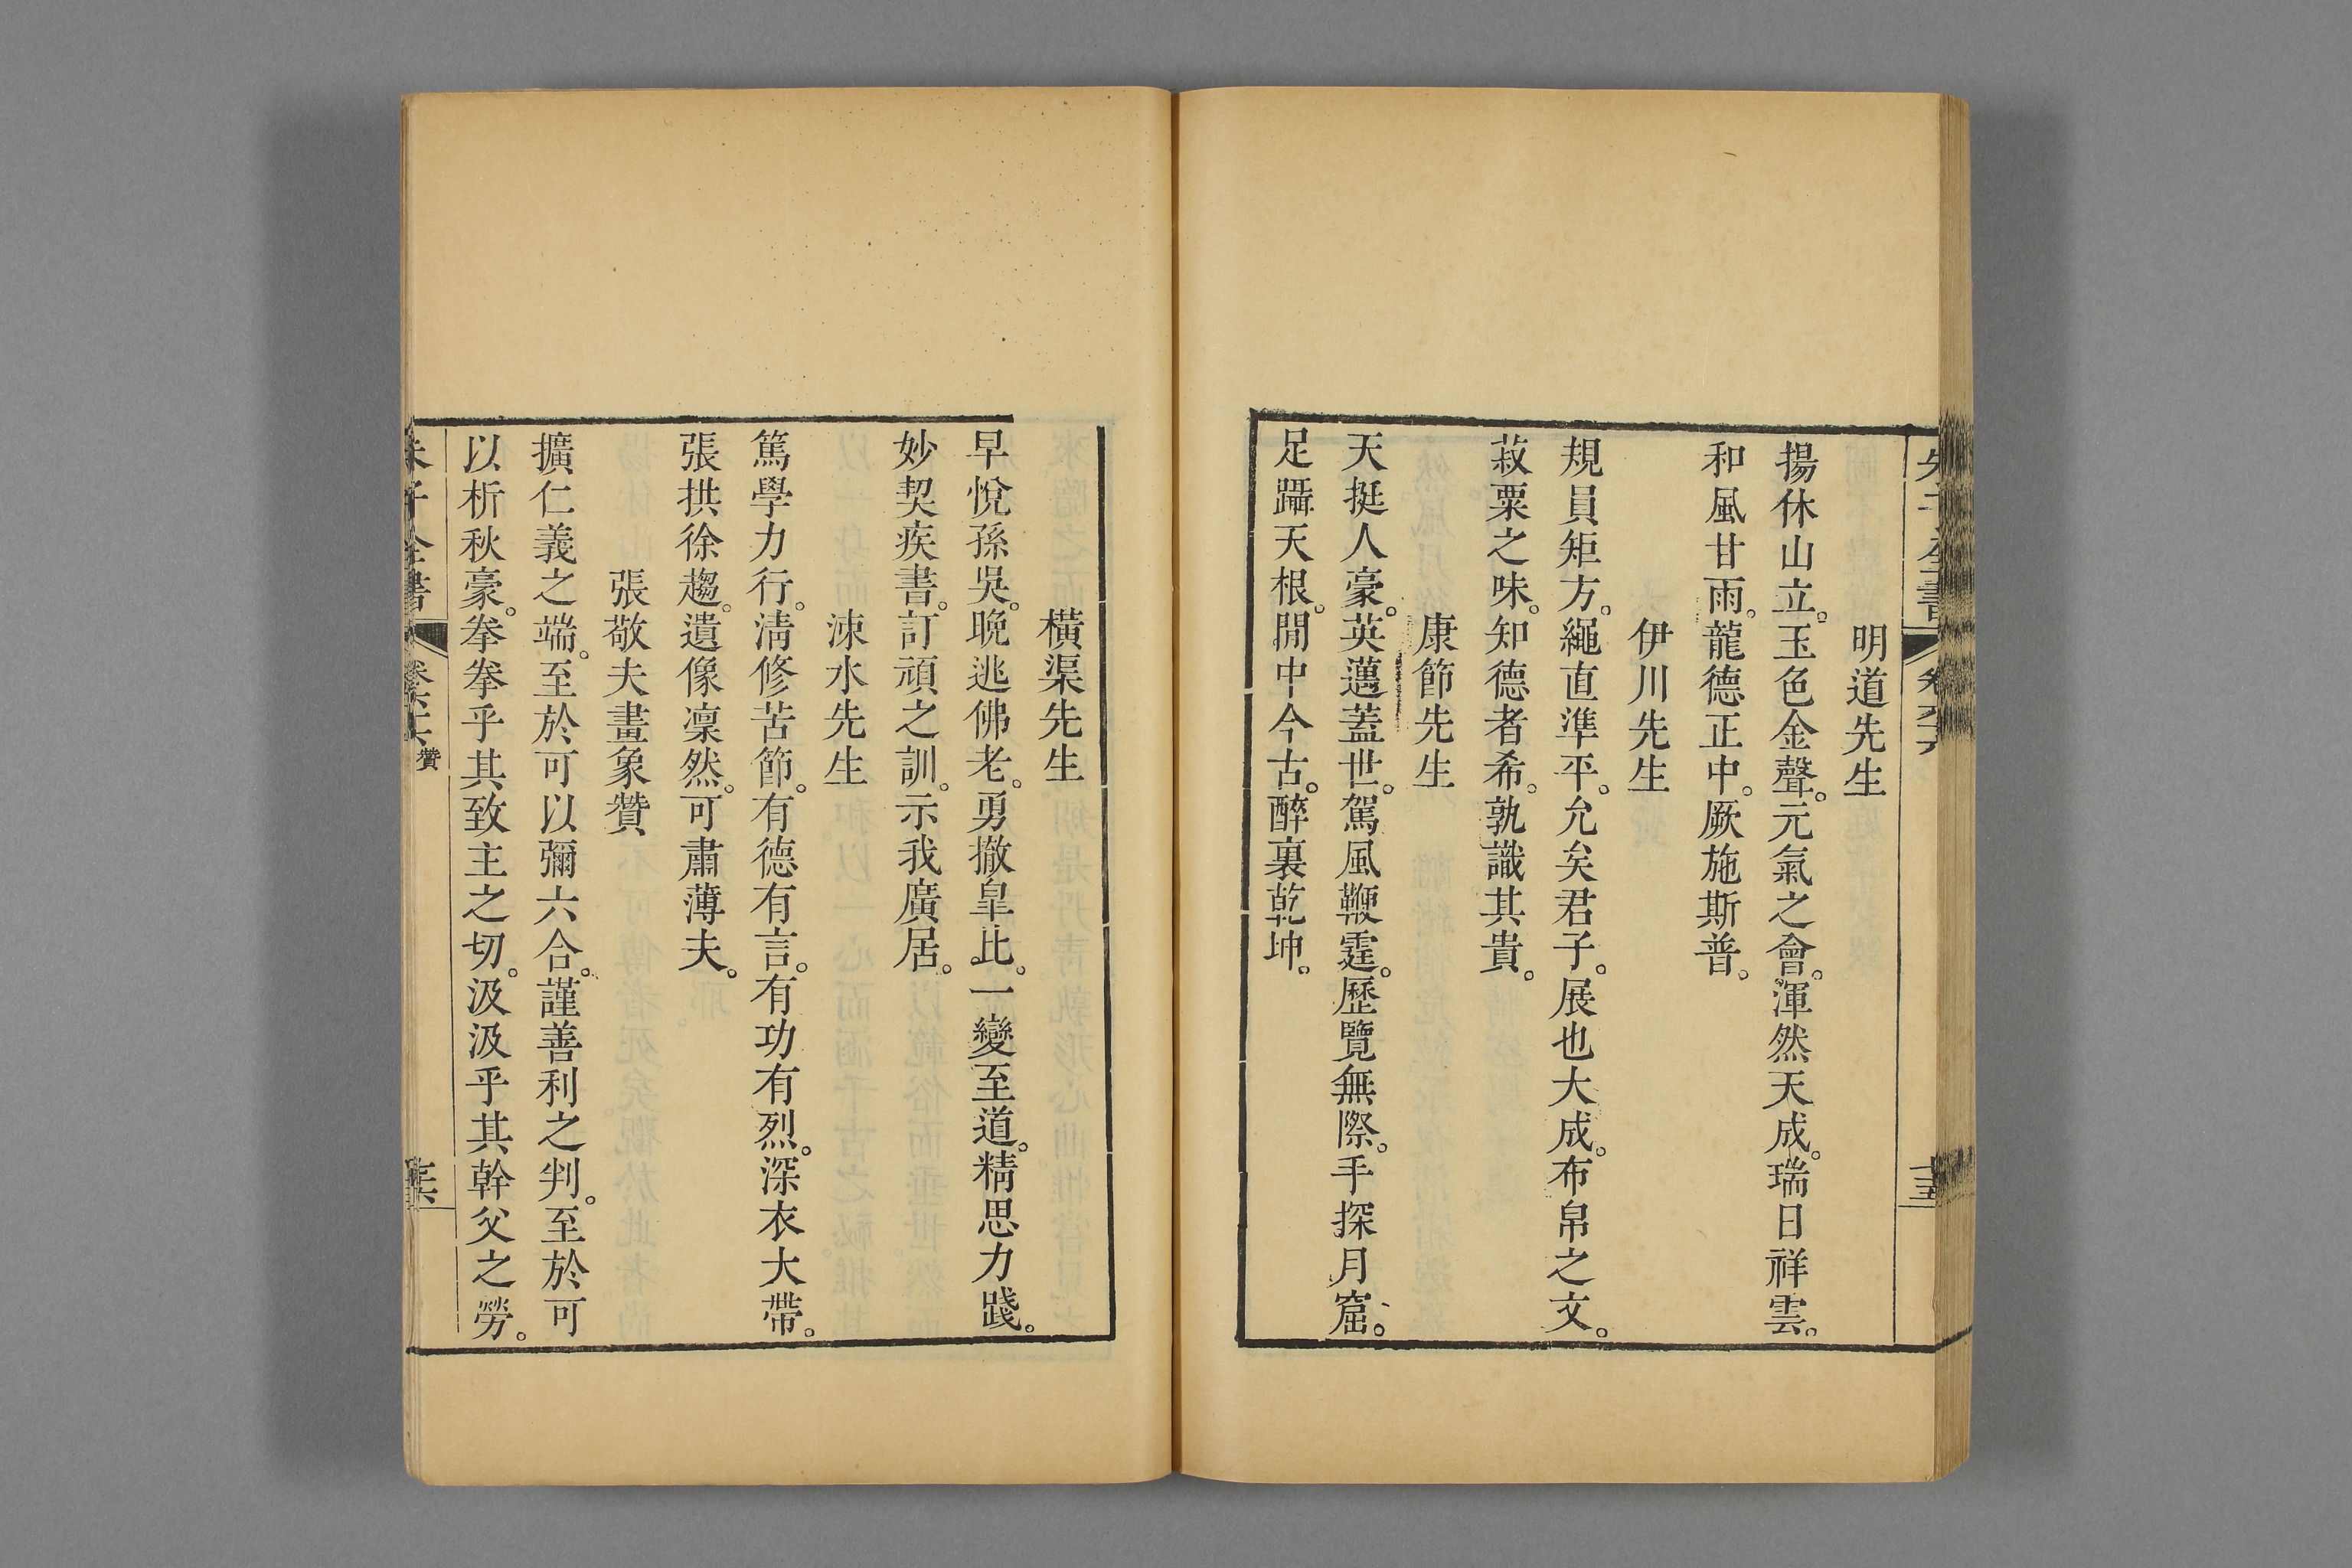 明道先生
揚休山立。玉色金聲。元氣之會。渾然天成。瑞日祥雲。
和風甘雨。龍德正中。厥施斯普。
伊川先生
規員矩方。繩直準平。允矣君子。展也大成。布帛之文。
菽粟之味。知德者希。孰識其貴。
康節先生
天挺人豪。英邁蓋世。駕風鞭霆。歷覽無際。手探月窟。
足躡天根。閒中今古。醉裏乾坤。
橫渠先生
早悅孫吳。晚逃佛老。勇撤皐比。一變至道。精思力踐。
妙契疾書。訂頑之訓。示我廣居。
涑水先生
篤學力行。淸修苦節。有德有言。有功有烈。深衣大帶。
張拱徐趨。遺像凜然。可肅薄夫。
張敬夫畫象贊
擴仁義之端。至於可以彌六合。謹善利之判。至於可
以析秋豪。拳拳乎其致主之切。汲汲乎其幹父之勞。
朱子全書
贊